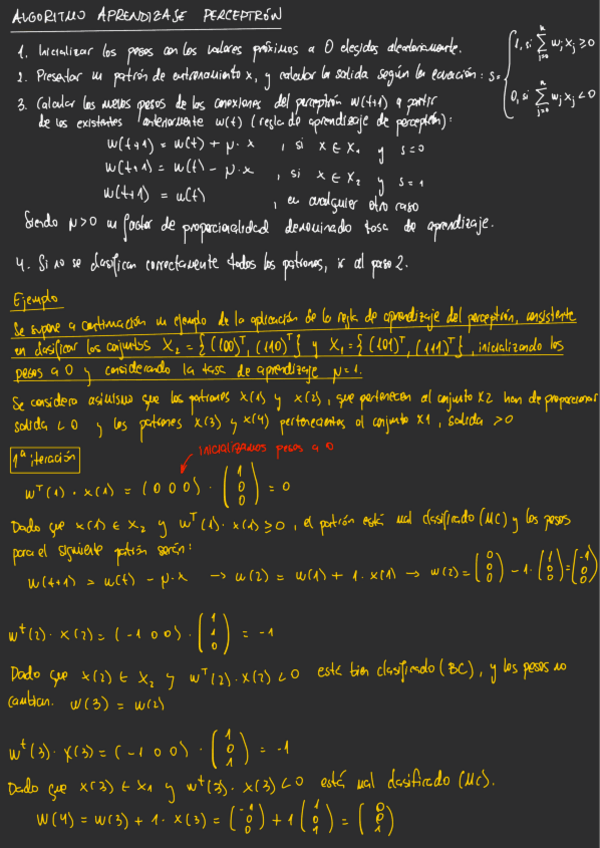 ALGORITMO APRENDIZASE PERCEPTRÓN
1. Inicializar los pesos con los valores próximos a 0 elegidos aleatoriamente.
2. Presentar un patrón de entrenamiento x, y calcular la salida según la ecuación: s = { 1, si ∑_{j=0}^{n} w_j x_j ≥ 0
0, si ∑_{j=0}^{n} w_j x_j < 0
3. Calcular los nuevos pesos de las conexiones del perceptrón w(t+1) a partir
de los existentes anteriormente w(t) (regla de aprendizaje de perceptrón):
w(t+1) = w(t) + μ · x , si x ∈ X₁ y s = 0
w(t+1) = w(t) − μ · x , si x ∈ X₂ y s = 1
w(t+1) = w(t) , en cualquier otro caso
Siendo μ > 0 un factor de proporcionalidad denominado tasa de aprendizaje.
4. Si no se clasifican correctamente todos los patrones, ir al paso 2.
Ejemplo
Se supone a continuación un ejemplo de la aplicación de la regla de aprendizaje del perceptrón, consistente
en clasificar los conjuntos X₂ = { (100)ᵀ, (110)ᵀ } y X₁ = { (101)ᵀ, (111)ᵀ }, inicializando los
pesos a 0 y considerando la tasa de aprendizaje μ = 1.
Se considera asimismo que los patrones x(1) y x(2), que pertenecen al conjunto X2 han de proporcionar
salida < 0 y los patrones x(3) y x(4) pertenecientes al conjunto X1, salida > 0
1ª iteración
inicializamos pesos a 0
wᵀ(1) · x(1) = (0 0 0) · (1 0 0) = 0
Dado que x(1) ∈ X₂ y wᵀ(1) · x(1) ≥ 0, el patrón está mal clasificado (MC) y los pesos
para el siguiente patrón serán:
w(t+1) = w(t) − μ · x → w(2) = w(1) + 1 · x(1) → w(2) = (0 0 0) − 1 · (1 0 0) = (-1 0 0)
wᵗ(2) · x(2) = (-1 0 0) · (1 1 0) = -1
Dado que x(2) ∈ X₂ y wᵀ(2) · x(2) < 0 está bien clasificado (BC), y los pesos no
cambian. w(3) = w(2)
wᵗ(3) · x(3) = (-1 0 0) · (1 0 1) = -1
Dado que x(3) ∈ X₁ y wᵗ(3) · x(3) < 0 está mal clasificado (MC).
w(4) = w(3) + 1 · x(3) = (-1 0 0) + 1 (1 0 1) = (0 0 1)